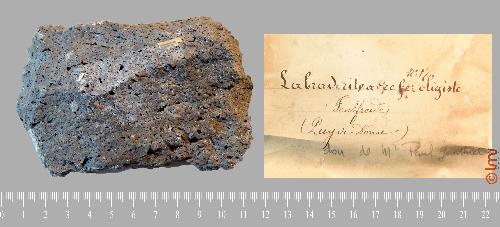 N° 1
Labradorite avec fer oligiste
(Puy-de-Dôme)
don de Mr Paul
0 1 2 3 4 5 6 7 8 9 10 11 12 13 14 15 16 17 18 19 20 21 22